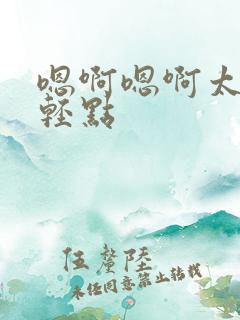 嗯啊嗯啊太
輕點
伍贅陸
未经同意禁止转载